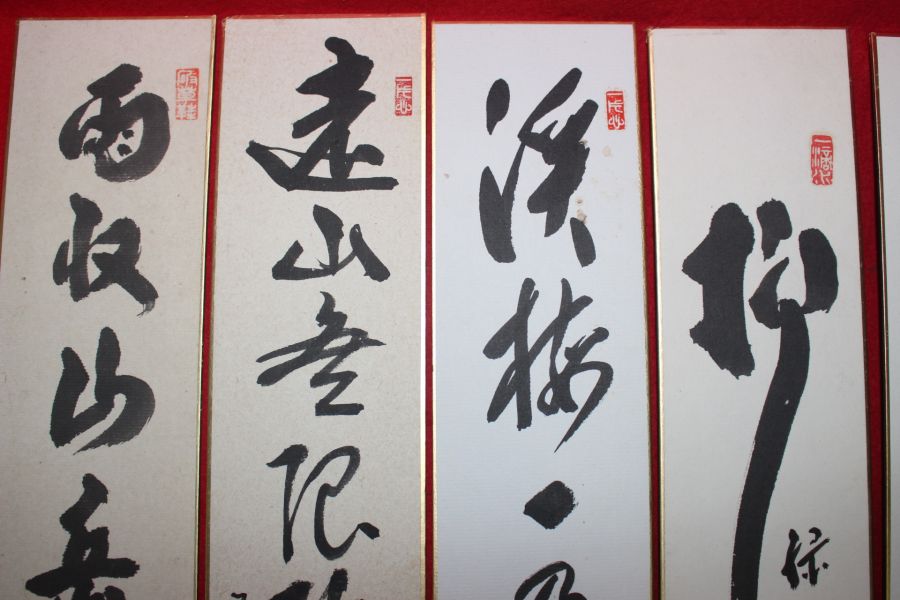 柳緑
渓梅一
遠山無限
雨収山岳